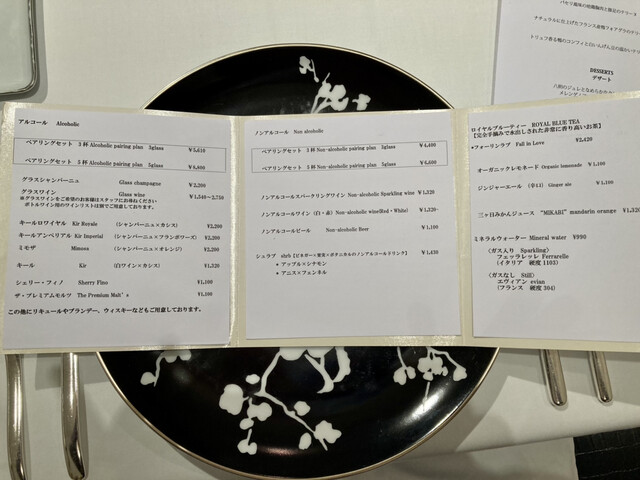 アルコール Alcoholic
ペアリングセット 3杯 Alcoholic pairing plan 3glass ￥5,610
ペアリングセット 5杯 Alcoholic pairing plan 5glass
グラスシャンパーニュ Glass champagne ￥2,200
グラスワイン Glass wine
※グラスワインをご希望のお客様はスタッフにお尋ねください
ボトルワイン用のワインリストは別で用意しております。
キールロワイヤル Kir Royale (シャンパーニュ×カシス) ￥2,200
キールアンペリアル Kir Imperial (シャンパーニュ×フランボワーズ) ￥2,200
ミモザ Mimosa (シャンパーニュ×オレンジ) ￥2,200
キール Kir (白ワイン×カシス) ￥1,320
シェリー・フィノ Sherry Fino ￥1,100
ザ・プレミアムモルツ The Premium Malt's ￥1,100
この他にリキュールやブランデー、ウィスキーなどもご用意しております。
ノンアルコール Non alcoholic
ペアリングセット 3杯 Non-alcoholic pairing plan 3glass ￥4,400
ペアリングセット 5杯 Non-alcoholic pairing plan 5glass
ノンアルコールスパークリングワイン Non-alcoholic Sparkling wine ￥1,320
ノンアルコールワイン (白・赤) Non-alcoholic wine(Red・White) ￥1,320~
ノンアルコールビール Non-alcoholic Beer ￥1,100
シュラブ shrb【ビネガー×果実×ボタニカルのノンアルコールドリンク】 ￥1,430
● アップル×シナモン
● アニス×フェンネル
ロイヤルブルーティー ROYAL BLUE TEA
【完全手摘みで水出しされた非常に香り高いお茶】
*フォーリンラブ Fall in Love ￥2,420
オーガニックレモネード Organic lemonade ￥1,100
ジンジャーエール (辛口) Ginger ale ￥1,100
三ヶ日みかんジュース "MIKABI" mandarin orange ￥1,320
ミネラルウォーター Mineral water ￥990
〈ガス入り Sparkling〉
フェッラレッレ Ferrarelle
(イタリア 硬度 1103)
〈ガスなし Still〉
エヴィアン evian
(フランス 硬度 304)
DESSERTS
デザート